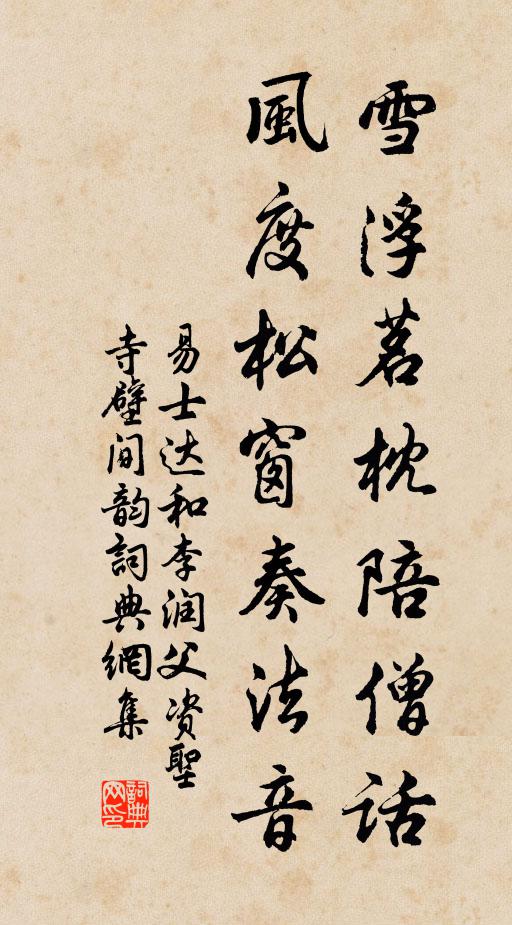 雪浮茗枕陪僧话
風度松窗奏法音
易士达和李润父资聖
寺壁间韵詞典網集
詞典網印